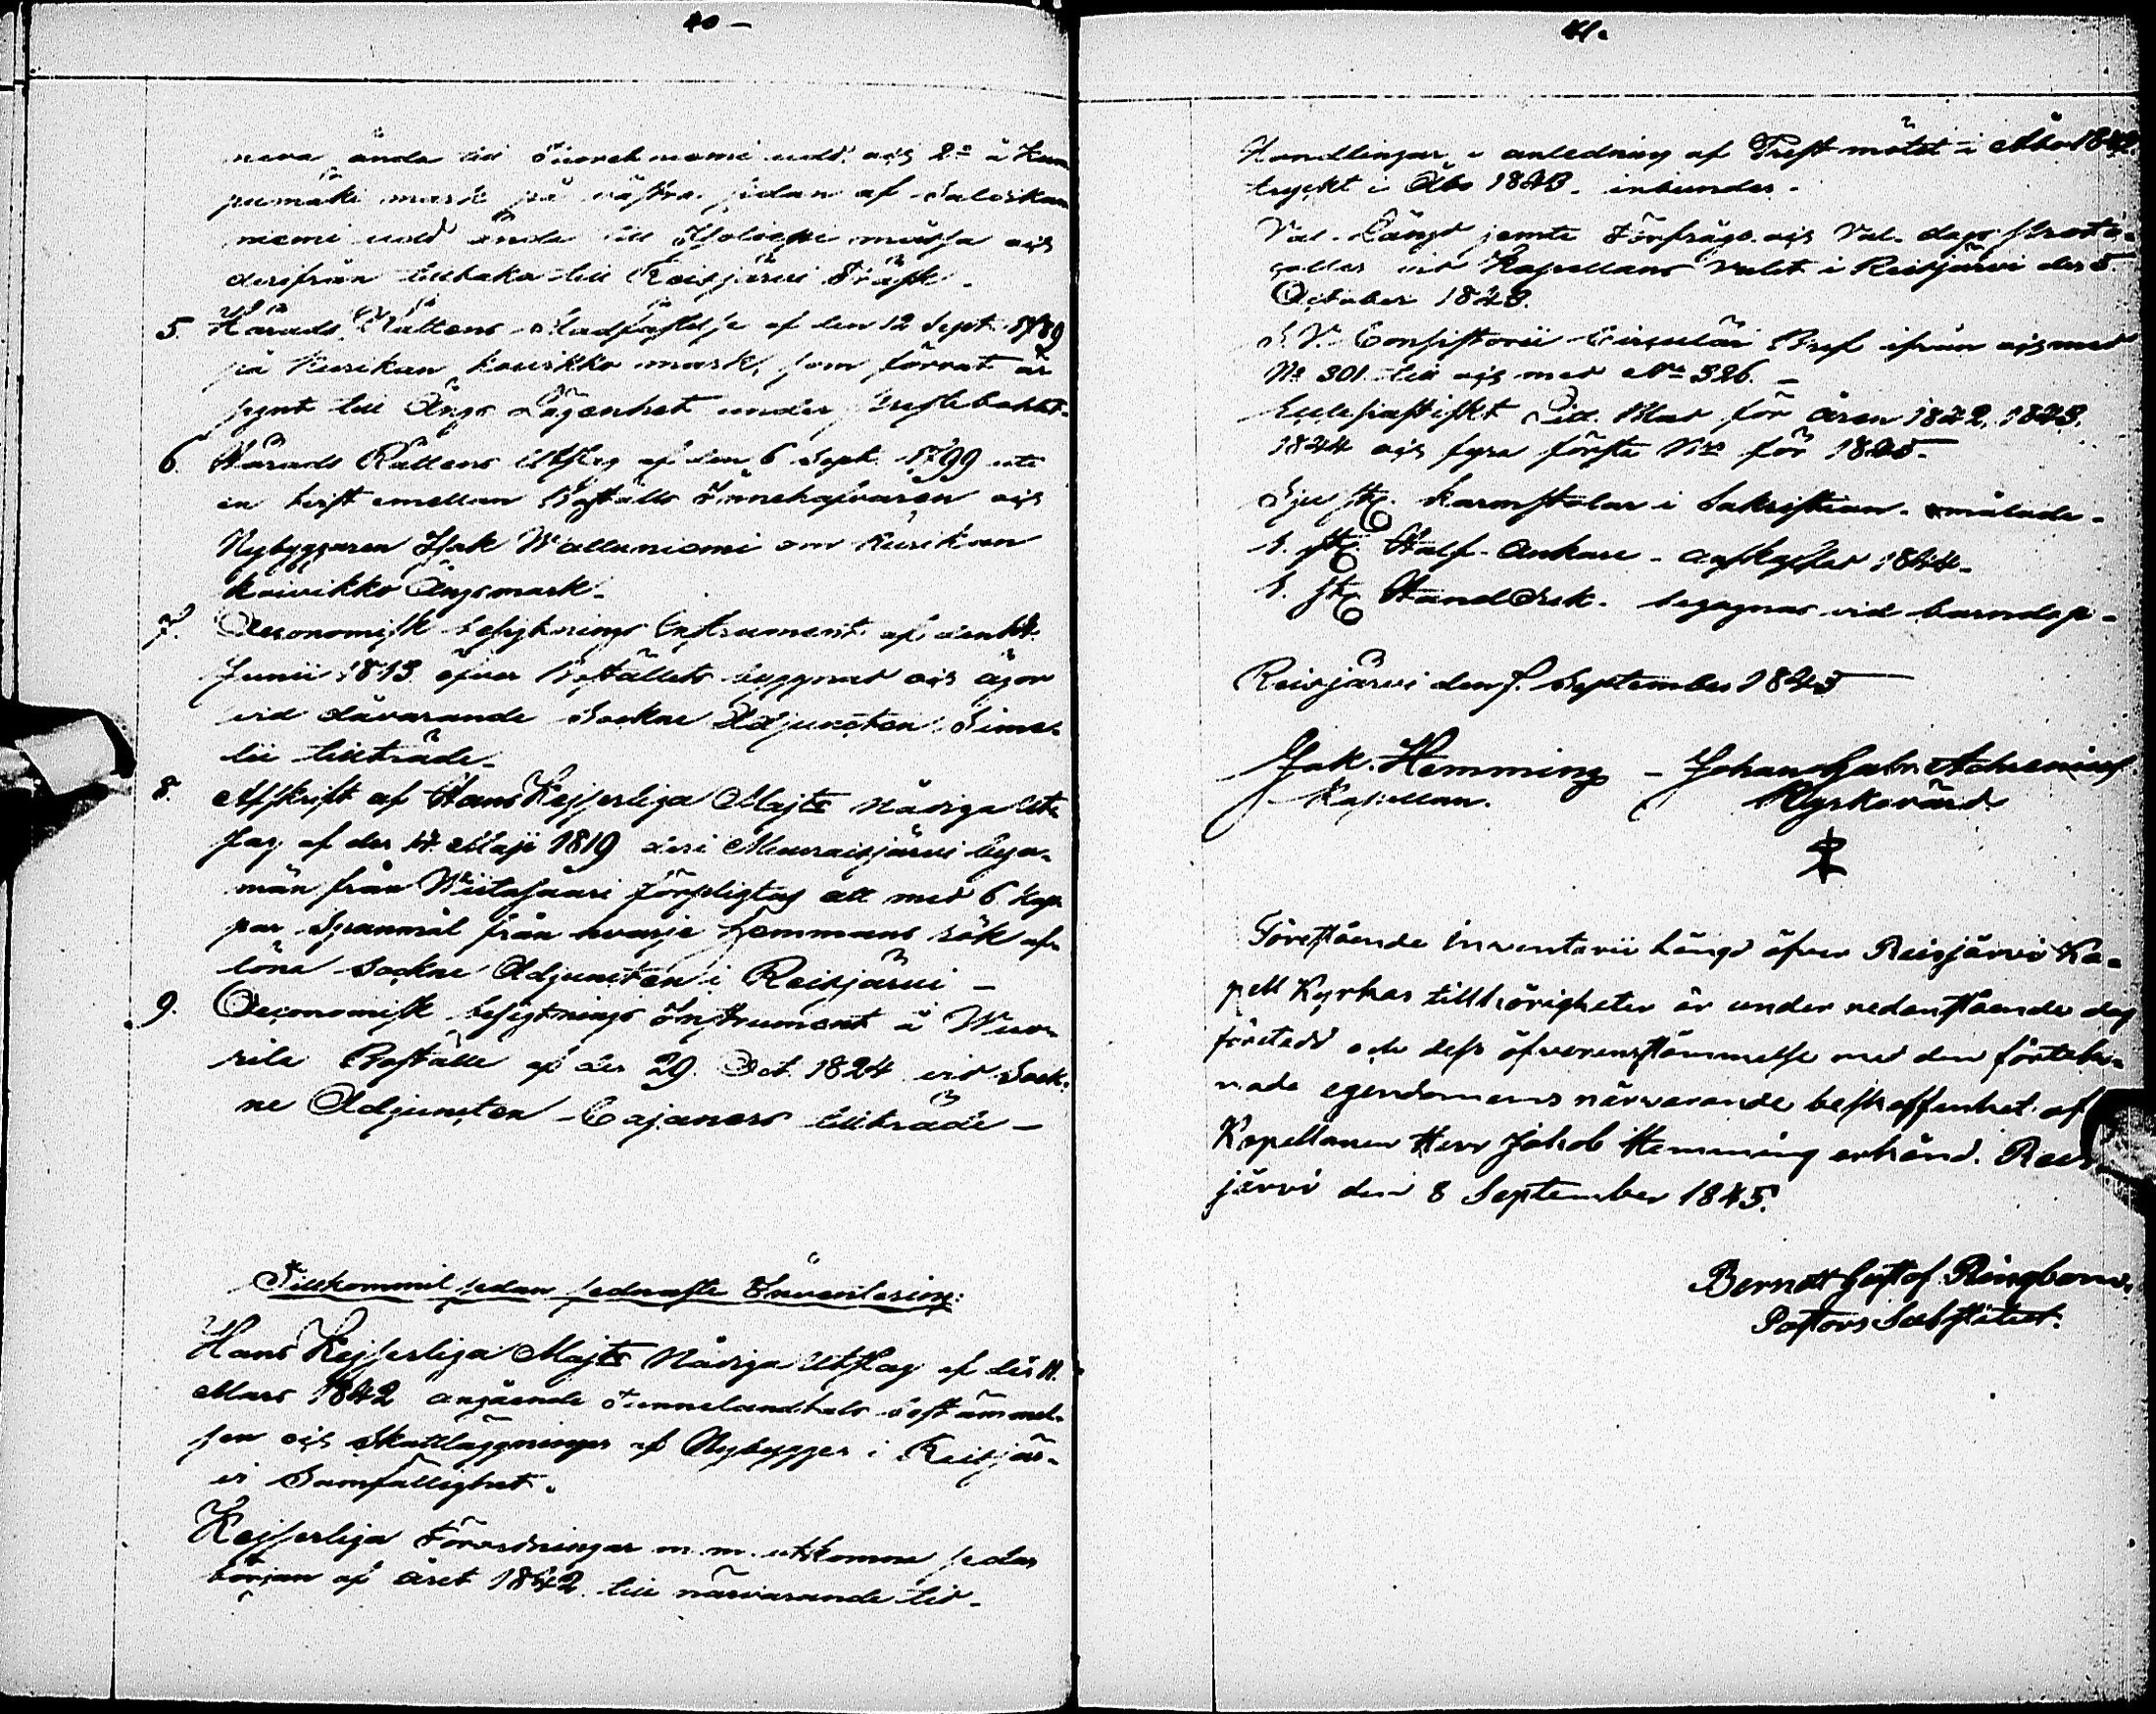 40 –
neva ända till niemi udd och 2:o å
mark på västra sidan af
niemi udd ända till mossa och
derifrån tillbaka till Reisjärvi Träsk.
5. Härads Rättens Stadfästelse af den 12 Sept. 1789
på mark, som förrut är
synt till Ängs Lägenhet under
6. Härads Rättens Utslag af den 6 Sept. 1799 uti
en tvist emellan Boställs Innehafvaren och
Nybyggaren Isak Wallaniemi om
koivikko Ängsmark.
7. Oeconomisk besigtnings Instrument af den 14
Junii 1813 öfver Boställets byggnad och ägor
vid dåvarande Sockne Adjuncten Sime-
lii tillträde.
8. Afskrift af Hans Kejserliga Majts Nådiga Ut-
slag af den 14 Maji 1819 deri Muuraisjärvi bya-
män från Wiitasaari förpligtas att med 6 Kap-
par Spanmål från hvarje Hemmans rök af-
löna Sockne Adjuncten i Reisjärvi –
9. Oeconomisk besigtnings Instrument å Wuo-
rila Boställe af den 29 Oct. 1824 vid Sock-
ne Adjuncten Cajaners tillträde –
Tillkommit sedan sednaste Inventering:
Hans Kejserliga Majts Nådiga Utslag af den 11
Mars 1842 angående Tunnelandtals bestämmel-
sen och Skattläggningen af Nybyggen i Reisjär-
vi Samfällighet.
Kejserliga Förordningar m.m. utkomne sedan
början af året 1842 till närvarande tid.
41.
Handlingar i anledning af Prest mötet i Åbo 1842.
tryckt i Åbo 1843. inbunden.
Val-Längd jemte Förfrågs och Val-dags Proto-
coller vid Kapellans valet i Reisjärvi den 5
October 1843.
S.V. Consistorii Circulär Bref ifrån och med
No 301 till och med No 326. –
Ecclesiastiskt Litt. Blad för åren 1842, 1843,
1844 och fyra första N:r för 1845.
Sju st. karmstolar i Sakristian. omålade.
1. st. Half-Ankare – anskaffad 1844.
1. st. Handduk. begagnas vid barndop.
Reisjärvi den 8. September 1845
Jak. Hemming – Johan Gabr.
Kapellan. Kyrkovärd
Förestående Inventarii Längd öfver Reisjärvi Ka-
pell Kyrkas tillhörigheter är under nedanstående dag
företedd och dess öfverensstämmelse med den förteck-
nade egendomens närvarande beskaffenhet af
Kapellanen Herr Jakob Hemming erkänd. Reis-
järvi den 8 September 1845.
Berndt Gustof Ringbom.
Pastors Substitut.